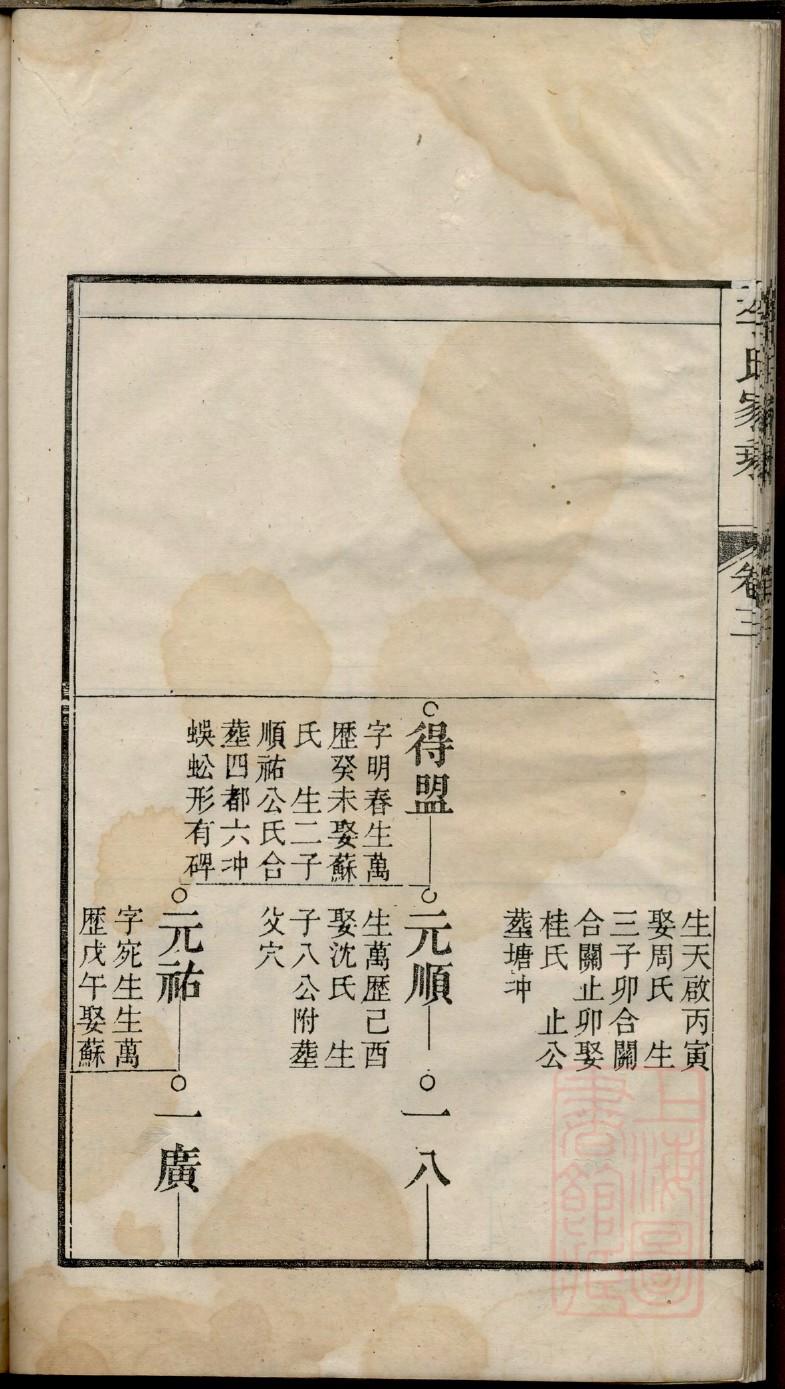 李氏家乘
卷三
生天啟丙寅
娶周氏　生
三子卯合關
合關止卯娶
桂氏　止公
塟塘冲
得盟
字明春生萬
歷癸未娶蘇
氏　生二子
順祐公氏合
塟四都六冲
蜈蚣形有碑
元順
生萬歷己酉
娶沈氏　生
子八公附塟
父穴
一八
元祐
字宛生生萬
歷戊午娶蘇
一廣
上海圖書館藏